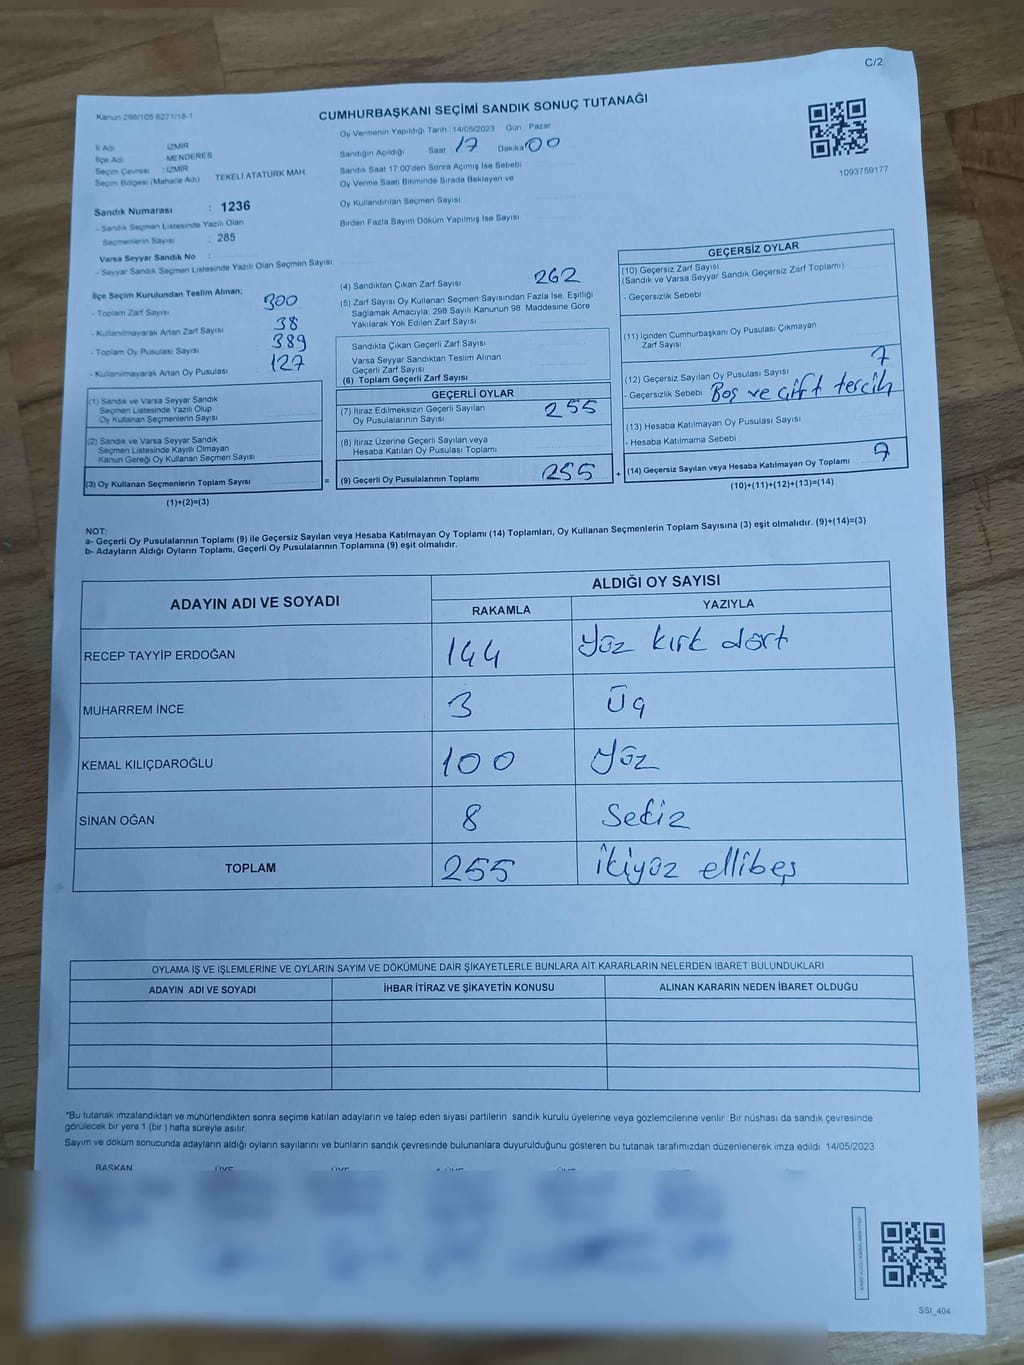 C/2
Kanun 298/105 6271/18-1
CUMHURBAŞKANI SEÇİMİ SANDIK SONUÇ TUTANAĞI
Oy Vermenin Yapıldığı Tarih : 14/05/2023 Gün : Pazar
İl Adı : İZMİR
İlçe Adı : MENDERES
Seçim Çevresi : İZMİR
Seçim Bölgesi (Mahalle Adı) TEKELİ ATATÜRK MAH.
Sandığın Açıldığı Saat 17 Dakika 00
Sandık Saat 17:00'den Sonra Açımış İse Sebebi
Oy Verme Saati Bitiminde Sırada Bekleyen ve
Oy Kullandırılan Seçmen Sayısı
Birden Fazla Sayım Döküm Yapılmış İse Sayısı
1093759177
Sandık Numarası : 1236
- Sandık Seçmen Listesinde Yazılı Olan
Seçmenlerin Sayısı : 285
Varsa Seyyar Sandık No :
- Seyyar Sandık Seçmen Listesinde Yazılı Olan Seçmen Sayısı:
İlçe Seçim Kurulundan Teslim Alınan;
- Toplam Zarf Sayısı : 300
- Kullanılmayarak Artan Zarf Sayısı : 38
- Toplam Oy Pusulası Sayısı : 389
- Kullanılmayarak Artan Oy Pusulası : 127
(1) Sandık ve Varsa Seyyar Sandık
Seçmen Listesinde Yazılı Olup
Oy Kullanan Seçmenlerin Sayısı
(2) Sandık ve Varsa Seyyar Sandık
Seçmen Listesinde Kayıtlı Olmayan
Kanun Gereği Oy Kullanan Seçmen Sayısı
(3) Oy Kullanan Seçmenlerin Toplam Sayısı
(1)+(2)=(3)
=
(4) Sandıktan Çıkan Zarf Sayısı 262
(5) Zarf Sayısı Oy Kullanan Seçmen Sayısından Fazla İse, Eşitliği
Sağlamak Amacıyla, 298 Sayılı Kanunun 98. Maddesine Göre
Yakılarak Yok Edilen Zarf Sayısı
Sandıkta Çıkan Geçerli Zarf Sayısı
Varsa Seyyar Sandıktan Teslim Alınan
Geçerli Zarf Sayısı
(6) Toplam Geçerli Zarf Sayısı
GEÇERLİ OYLAR
(7) İtiraz Edilmeksizin Geçerli Sayılan
Oy Pusulalarının Sayısı 255
(8) İtiraz Üzerine Geçerli Sayılan veya
Hesaba Katılan Oy Pusulası Toplamı
(9) Geçerli Oy Pusulalarının Toplamı 255
+
GEÇERSİZ OYLAR
(10) Geçersiz Zarf Sayısı
(Sandık ve Varsa Seyyar Sandık Geçersiz Zarf Toplamı)
- Geçersizlik Sebebi
(11) İçinden Cumhurbaşkanı Oy Pusulası Çıkmayan
Zarf Sayısı
(12) Geçersiz Sayılan Oy Pusulası Sayısı 7
- Geçersizlik Sebebi Boş ve çift tercih
(13) Hesaba Katılmayan Oy Pusulası Sayısı
- Hesaba Katılmama Sebebi
(14) Geçersiz Sayılan veya Hesaba Katılmayan Oy Toplamı 7
(10)+(11)+(12)+(13)=(14)
NOT:
a- Geçerli Oy Pusulalarının Toplamı (9) ile Geçersiz Sayılan veya Hesaba Katılmayan Oy Toplamı (14) Toplamları, Oy Kullanan Seçmenlerin Toplam Sayısına (3) eşit olmalıdır. (9)+(14)=(3)
b- Adayların Aldığı Oyların Toplamı, Geçerli Oy Pusulalarının Toplamına (9) eşit olmalıdır.
ADAYIN ADI VE SOYADI ALDIĞI OY SAYISI
RAKAMLA YAZIYLA
RECEP TAYYİP ERDOĞAN 144 Yüz kırk dört
MUHARREM İNCE 3 Üç
KEMAL KILIÇDAROĞLU 100 Yüz
SİNAN OĞAN 8 Sekiz
TOPLAM 255 ikiyüz ellibeş
OYLAMA İŞ VE İŞLEMLERİNE VE OYLARIN SAYIM VE DÖKÜMÜNE DAİR ŞİKAYETLERLE BUNLARA AİT KARARLARIN NELERDEN İBARET BULUNDUKLARI
ADAYIN ADI VE SOYADI İHBAR İTİRAZ VE ŞİKAYETİN KONUSU ALINAN KARARIN NEDEN İBARET OLDUĞU
*Bu tutanak imzalandıktan ve mühürlendikten sonra seçime katılan adayların ve talep eden siyasi partilerin sandık kurulu üyelerine veya gözlemcilerine verilir. Bir nüshası da sandık çevresinde
görülecek bir yere 1 (bir ) hafta süreyle asılır.
Sayım ve döküm sonucunda adayların aldığı oyların sayılarını ve bunların sandık çevresinde bulunanlara duyurulduğunu gösteren bu tutanak tarafımızdan düzenlenerek imza edildi. 14/05/2023
BAŞKAN ÜYE ÜYE ÜYE
SSI_404